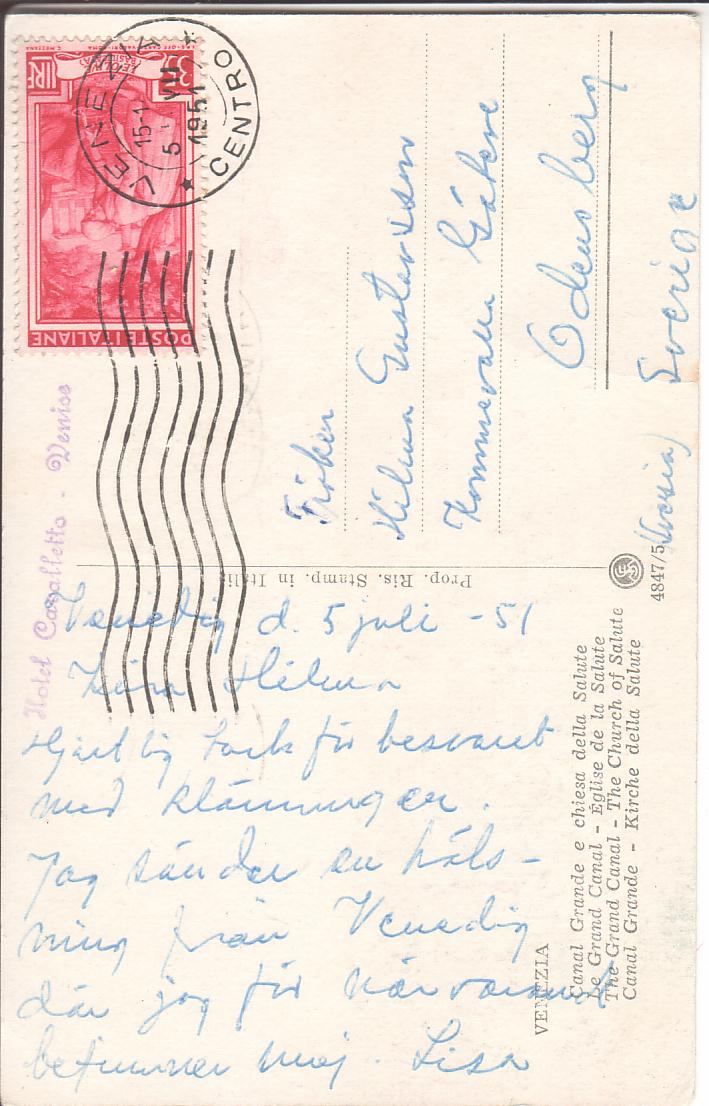 Venedig d. 5 juli - 51
Kära Hilma
Hjärtlig tack för besväret
med klänningen.
Jag sänder en häls-
ning från Venedig
där jag för närvarande
befinner mej. Lisa
Fröken
Hilma Gustavsson
Göken
Odensberg
Sverige
(Svezia)
Hotel Cavalletto - Venise
VENEZIA
CENTRO
15-1
5 VII
1951
LIRE
POSTE ITALIANE
Prop. Ris. Stamp. in Italia
4847/5
VENEZIA
Canal Grande e chiesa della Salute
Le Grand Canal - Église de la Salute
The Grand Canal - The Church of Salute
Canal Grande - Kirche della Salute